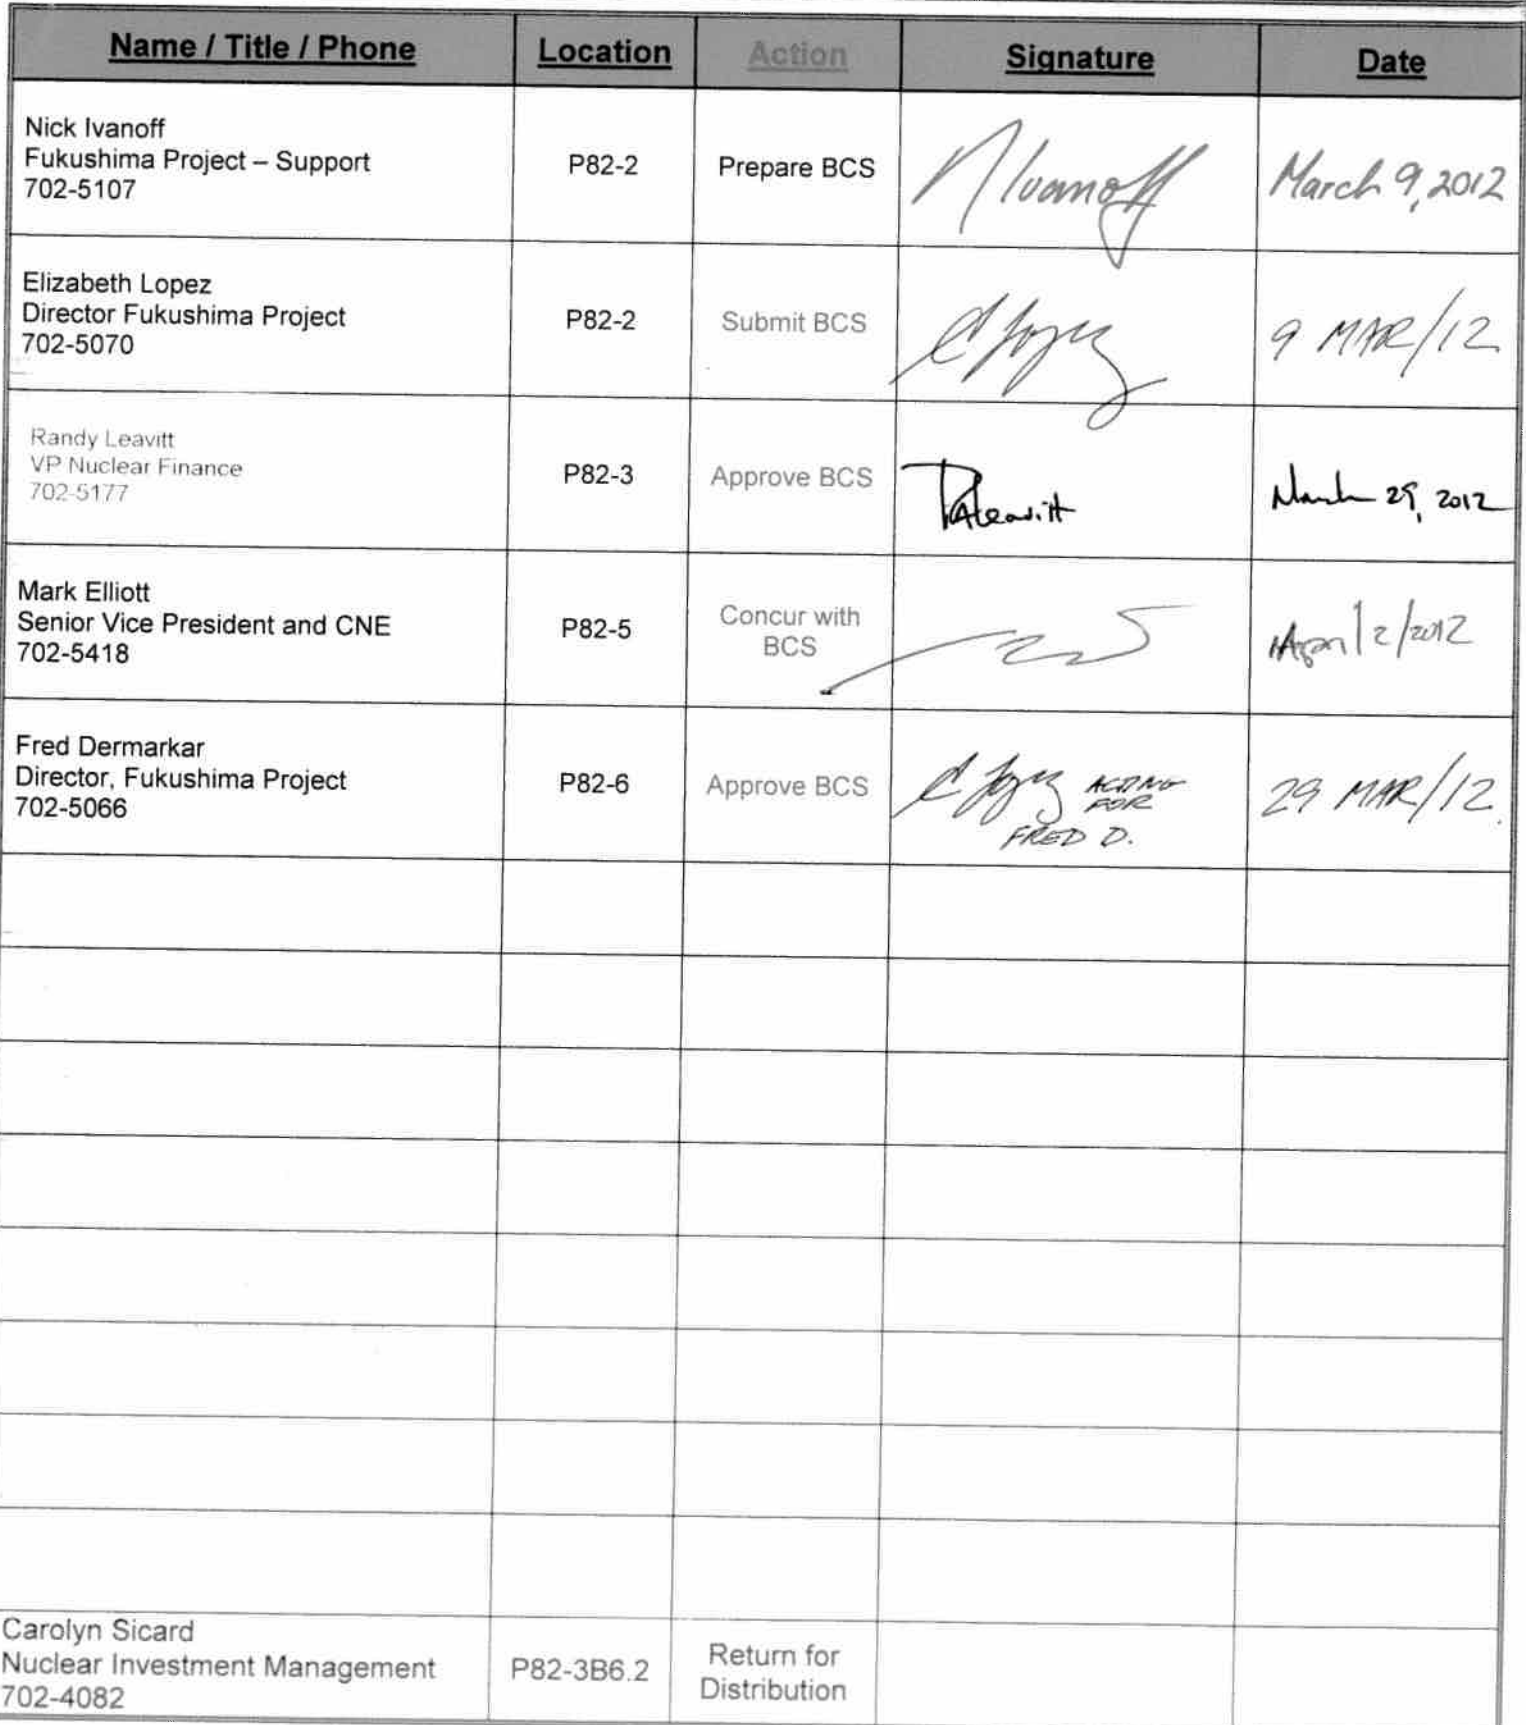 Name / Title / Phone Location Action Signature Date
Nick Ivanoff
Fukushima Project – Support
702-5107
P82-2
Prepare BCS
N Ivanoff
March 9, 2012
Elizabeth Lopez
Director Fukushima Project
702-5070
P82-2
Submit BCS
9 MAR/12
Randy Leavitt
VP Nuclear Finance
702-5177
P82-3
Approve BCS
RALeavitt
March 29, 2012
Mark Elliott
Senior Vice President and CNE
702-5418
P82-5
Concur with
BCS
April 2/2012
Fred Dermarkar
Director, Fukushima Project
702-5066
P82-6
Approve BCS
ACTING
FOR
FRED D.
29 MAR/12.
Carolyn Sicard
Nuclear Investment Management
702-4082
P82-3B6.2
Return for
Distribution